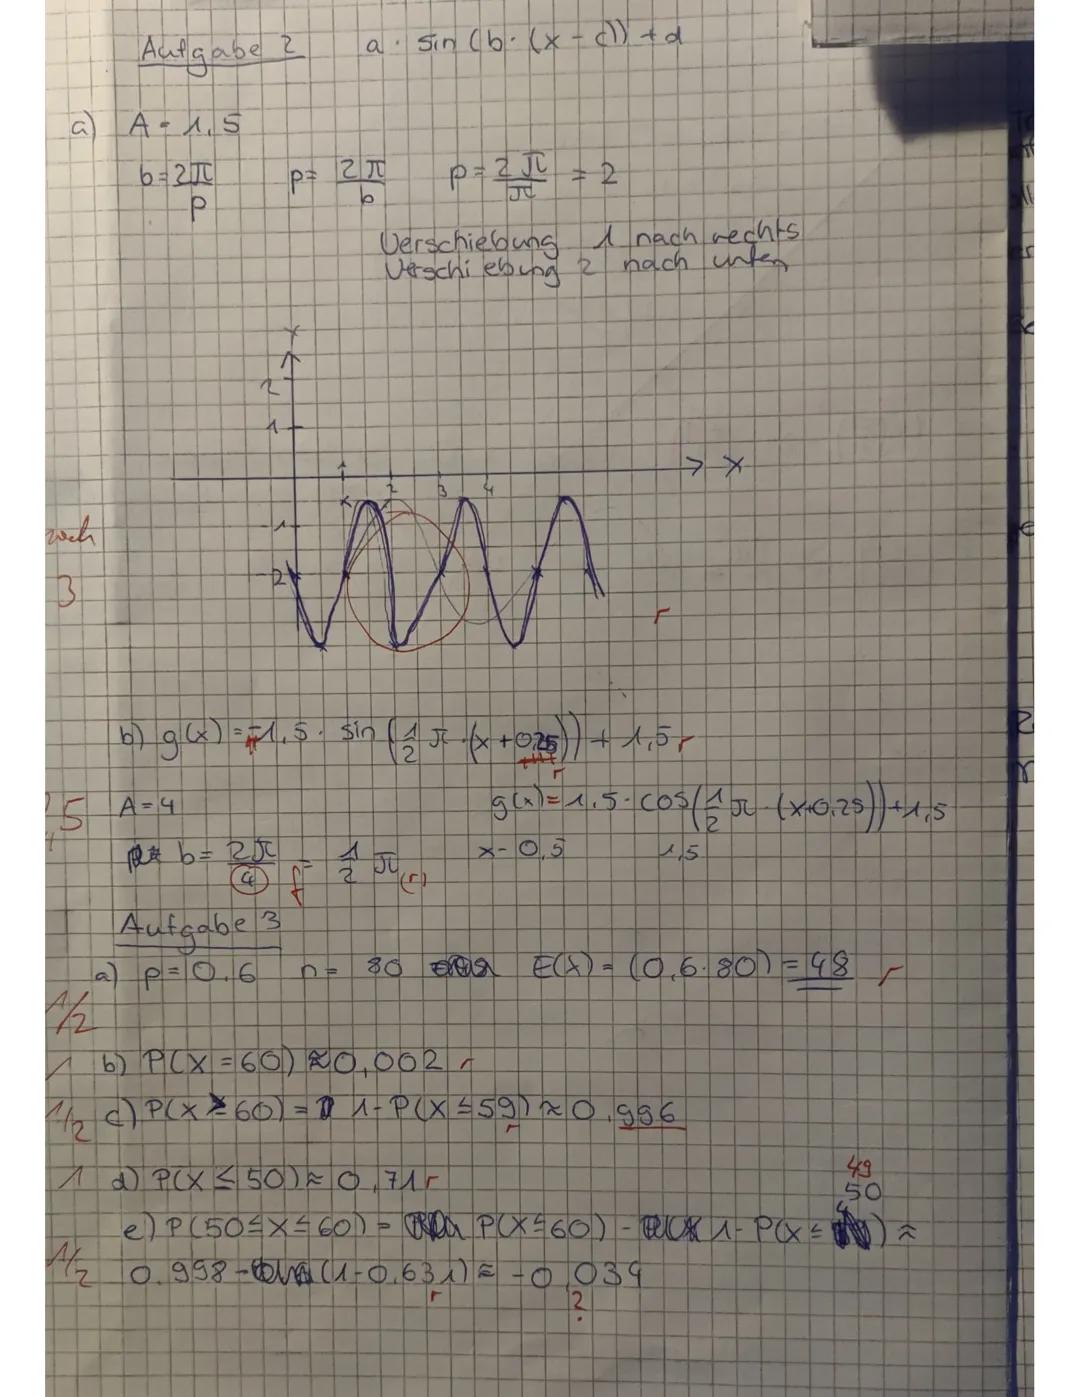 Aufgabe 2 a · sin(b · (x - c)) + d
a) A = 1,5
b = 2π/p p = 2π/b p = 2π/π = 2
Verschiebung 1 nach rechts
Verschiebung 2 nach unten
Y
2
1
1 2 3 4 X
-1
-2
3
r
b) g(x) = 1,5 · sin(1/2 π · (x + 0,25)) + 1,5 r
r
A = 4 g(x) = 1,5 · cos(1/2 π · (x+0,25)) + 1,5
b = 2π/4 f = 1/2 π (r) x - 0,5 1,5
Aufgabe 3
a) p = 0,6 n = 80 E(X) = (0,6 · 80) = 48 r
1/2
1 b) P(X = 60) ≈ 0,002 r
1/2 c) P(X ≥ 60) = 1 - P(X ≤ 59) ≈ 0,996
r
1 d) P(X ≤ 50) ≈ 0,71 r
49
50
e) P(50 ≤ X ≤ 60) = P(X ≤ 60) - 1 - P(X ≤ ) ≈
1/2 0,998 - (1 - 0,631) ≈ -0,034
r ?